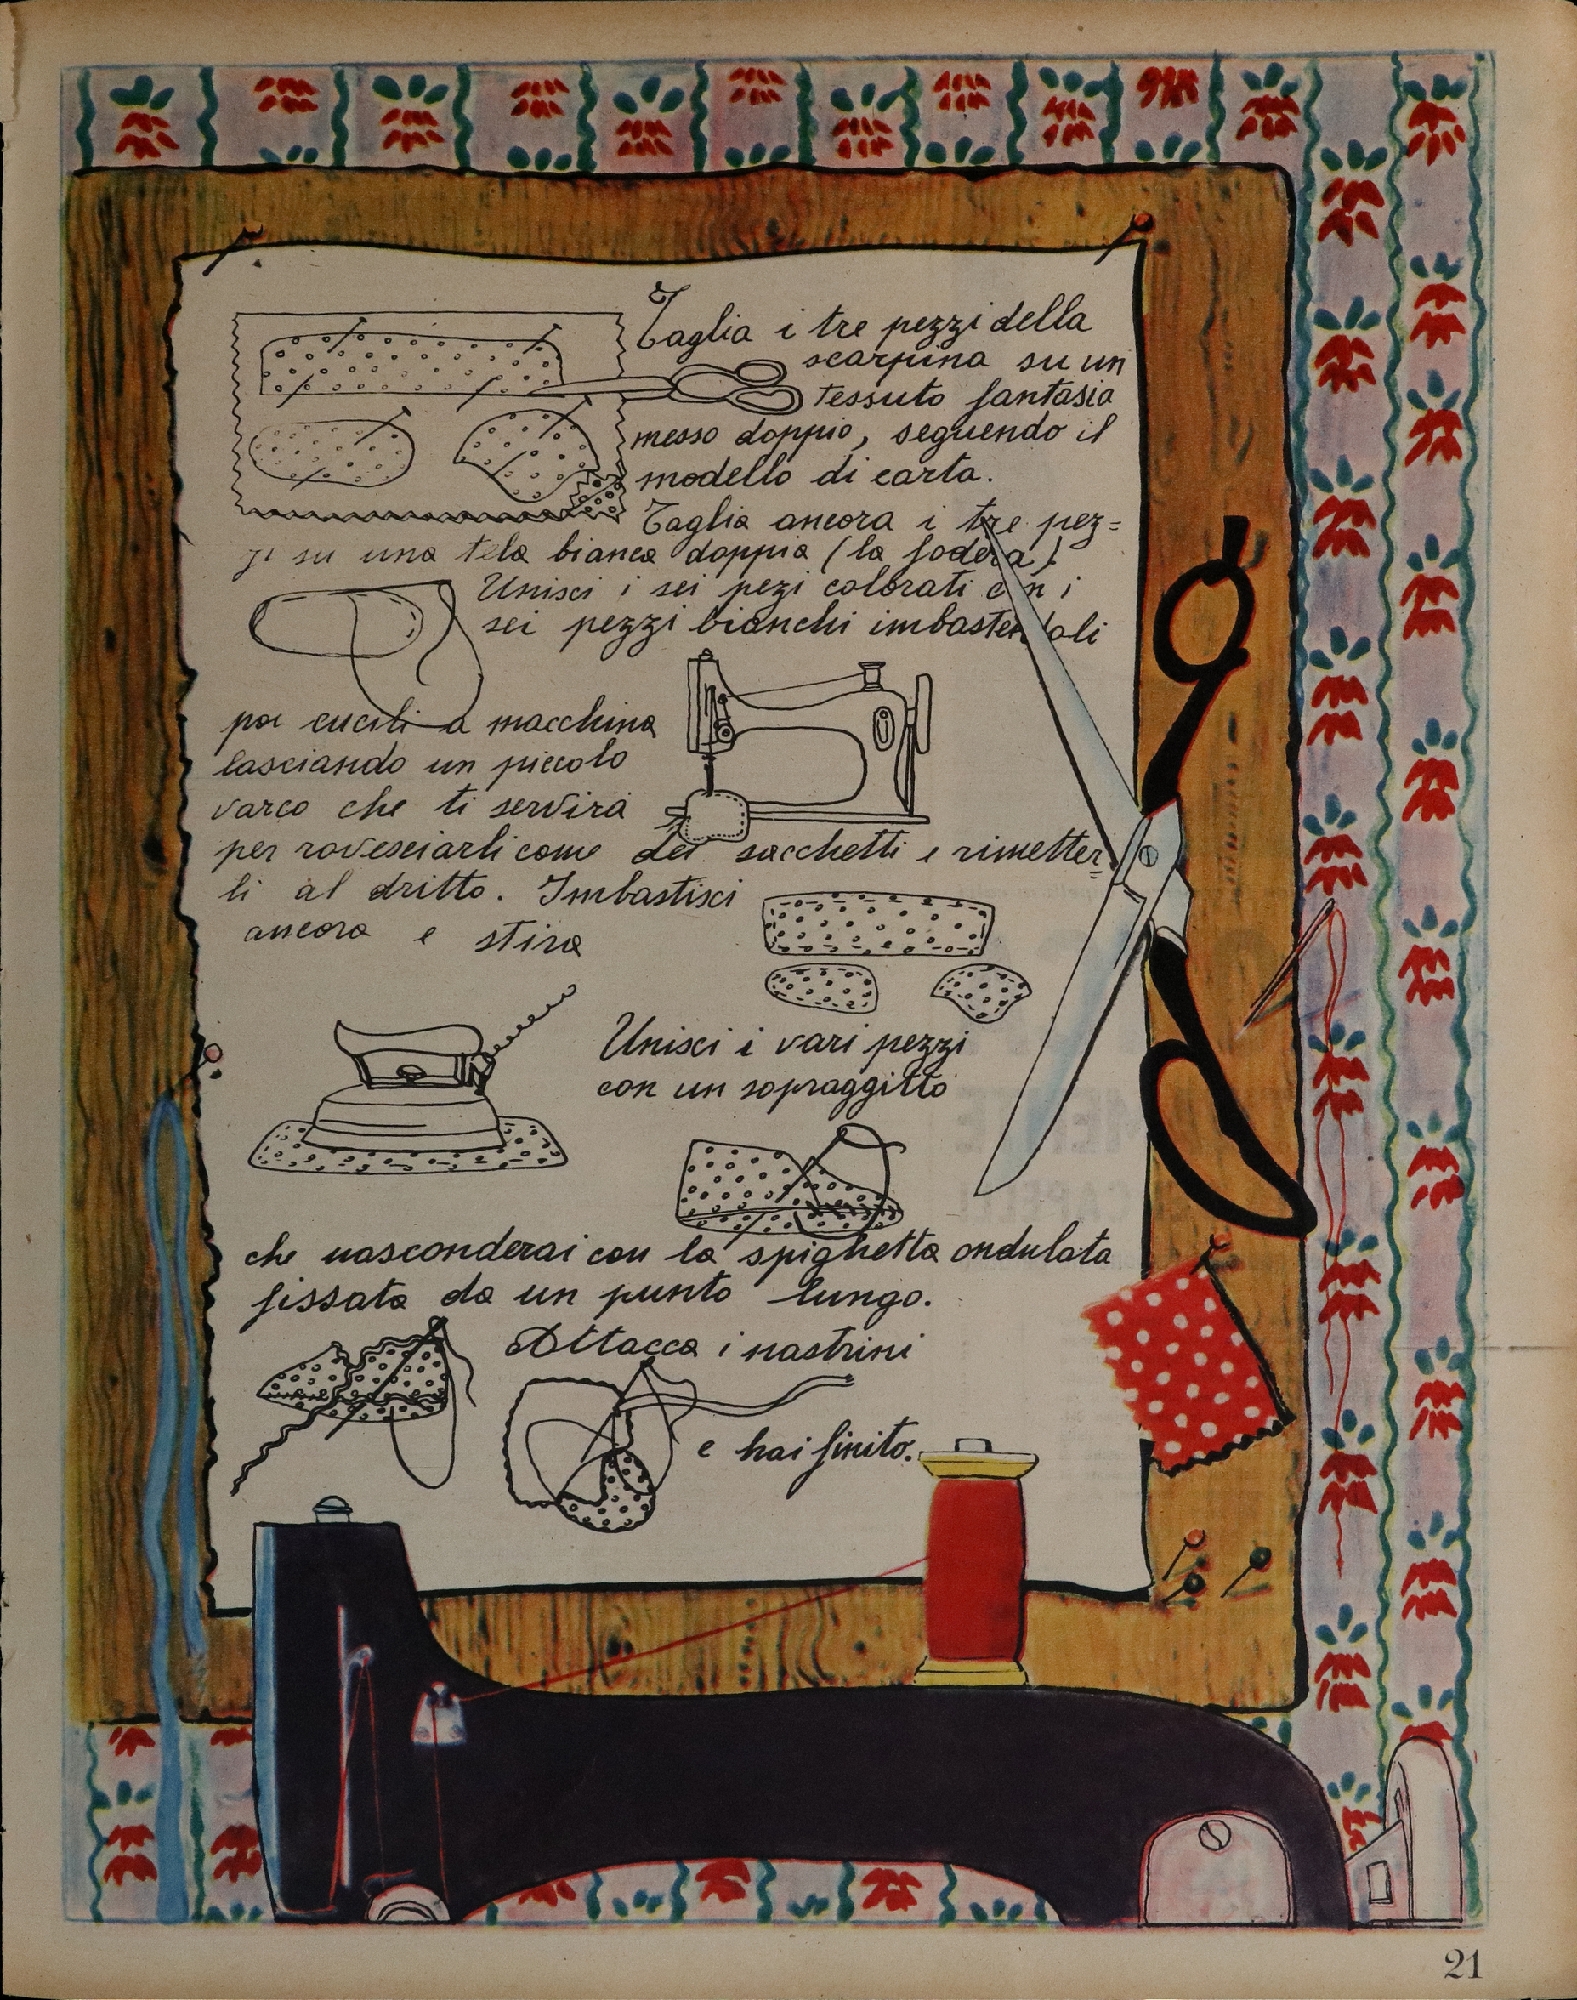 Taglia i tre pezzi della
scarpina su un
tessuto fantasia
messo doppio, seguendo il
modello di carta.
Taglia ancora i tre pez=
zi su una tela bianca doppia (la fodera)
Unisci i sei pezi colorati con i
sei pezzi bianchi imbastendoli
poi cucili a macchina
lasciando un piccolo
varco che ti servirà
per rovesciarli come dei sacchetti e rimetter=
li al dritto. Imbastisci
ancora e stira
Unisci i vari pezzi
con un sopraggitto
che nasconderai con la spighetta ondulata
fissata da un punto lungo.
Attacca i nastrini
e hai finito.
21